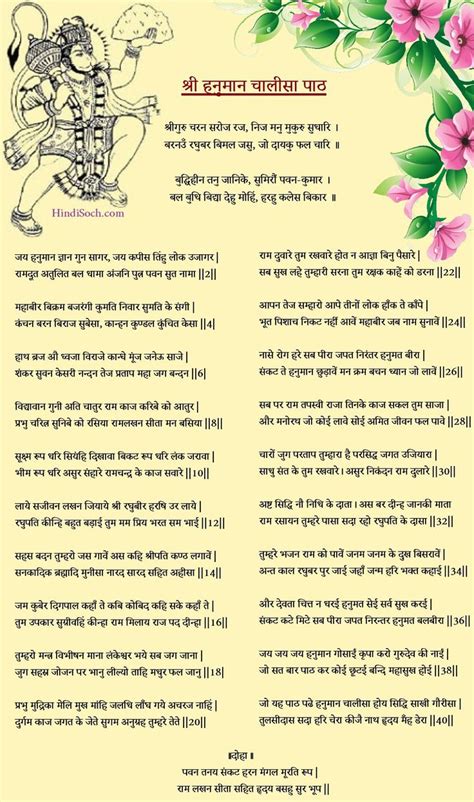 श्री हनुमान चालीसा पाठ
श्रीगुरु चरन सरोज रज, निज मनु मुकुरु सुधारि ।
बरनउँ रघुबर बिमल जसु, जो दायकु फल चारि ॥
बुद्धिहीन तनु जानिके, सुमिरौं पवन-कुमार ।
बल बुधि बिद्या देहु मोहिं, हरहु कलेस बिकार ॥
HindiSoch.com
जय हनुमान ज्ञान गुन सागर, जय कपीस तिंहु लोक उजागर |
रामदूत अतुलित बल धामा अंजनि पुत्र पवन सुत नामा ||2||
महाबीर बिक्रम बजरंगी कुमति निवार सुमति के संगी |
कंचन बरन बिराज सुबेसा, कान्हन कुण्डल कुंचित केसा ||4|
हाथ ब्रज औ ध्वजा विराजे कान्धे मूंज जनेऊ साजे |
शंकर सुवन केसरी नन्दन तेज प्रताप महा जग बन्दन ||6|
विद्यावान गुनी अति चातुर राम काज करिबे को आतुर |
प्रभु चरित्र सुनिबे को रसिया रामलखन सीता मन बसिया ||8||
सूक्ष्म रूप धरि सियंहि दिखावा बिकट रूप धरि लंक जरावा |
भीम रूप धरि असुर संहारे रामचन्द्र के काज सवारे ||10||
लाये सजीवन लखन जियाये श्री रघुबीर हरषि उर लाये |
रघुपति कीन्हि बहुत बड़ाई तुम मम प्रिय भरत सम भाई ||12||
सहस बदन तुम्हरो जस गावें अस कहि श्रीपति कण्ठ लगावें |
सनकादिक ब्रह्मादि मुनीसा नारद सारद सहित अहीसा ||14||
जम कुबेर दिगपाल कहाँ ते कबि कोबिद कहि सके कहाँ ते |
तुम उपकार सुग्रीवहिं कीन्हा राम मिलाय राज पद दीन्हा ||16||
तुम्हरो मन्त्र विभीषन माना लंकेश्वर भये सब जग जाना |
जुग सहस्र जोजन पर भानु लील्यो ताहि मधुर फल जानु ||18|
प्रभु मुद्रिका मेलि मुख मांहि जलधि लाँघ गये अचरज नाहिं |
दुर्गम काज जगत के जेते सुगम अनुग्रह तुम्हरे तेते ||20||
राम दुवारे तुम रखवारे होत न आज्ञा बिनु पैसारे |
सब सुख लहे तुम्हारी सरना तुम रक्षक काहें को डरना ||22||
आपन तेज सम्हारो आपे तीनों लोक हाँक ते काँपे |
भूत पिशाच निकट नहीं आवें महाबीर जब नाम सुनावें ||24||
नासे रोग हरे सब पीरा जपत निरंतर हनुमत बीरा |
संकट ते हनुमान छुड़ावें मन क्रम बचन ध्यान जो लावें ||26||
सब पर राम तपस्वी राजा तिनके काज सकल तुम साजा |
और मनोरथ जो कोई लावे सोई अमित जीवन फल पावे ||28||
चारों जुग परताप तुम्हारा है परसिद्ध जगत उजियारा |
साधु संत के तुम रखवारे । असुर निकंदन राम दुलारे ||30||
अष्ट सिद्धि नौ निधि के दाता । अस बर दीन्ह जानकी माता
राम रसायन तुम्हरे पासा सदा रहो रघुपति के दासा ||32||
तुम्हरे भजन राम को पावें जनम जनम के दुख बिसरावें |
अन्त काल रघुबर पुर जाई जहाँ जन्म हरि भक्त कहाई ||34||
और देवता चित्त न धरई हनुमत सेई सर्व सुख करई |
संकट कटे मिटे सब पीरा जपत निरन्तर हनुमत बलबीरा ||36||
जय जय जय हनुमान गोसाईं कृपा करो गुरुदेव की नाईं |
जो सत बार पाठ कर कोई छूटई बन्दि महासुख होई ||38||
जो यह पाठ पढे हनुमान चालीसा होय सिद्धि साखी गौरीसा |
तुलसीदास सदा हरि चेरा कीजै नाथ हृदय मँह डेरा ||40||
॥दोहा॥
पवन तनय संकट हरन मंगल मूरति रूप |
राम लखन सीता सहित हृदय बसहु सुर भूप ||